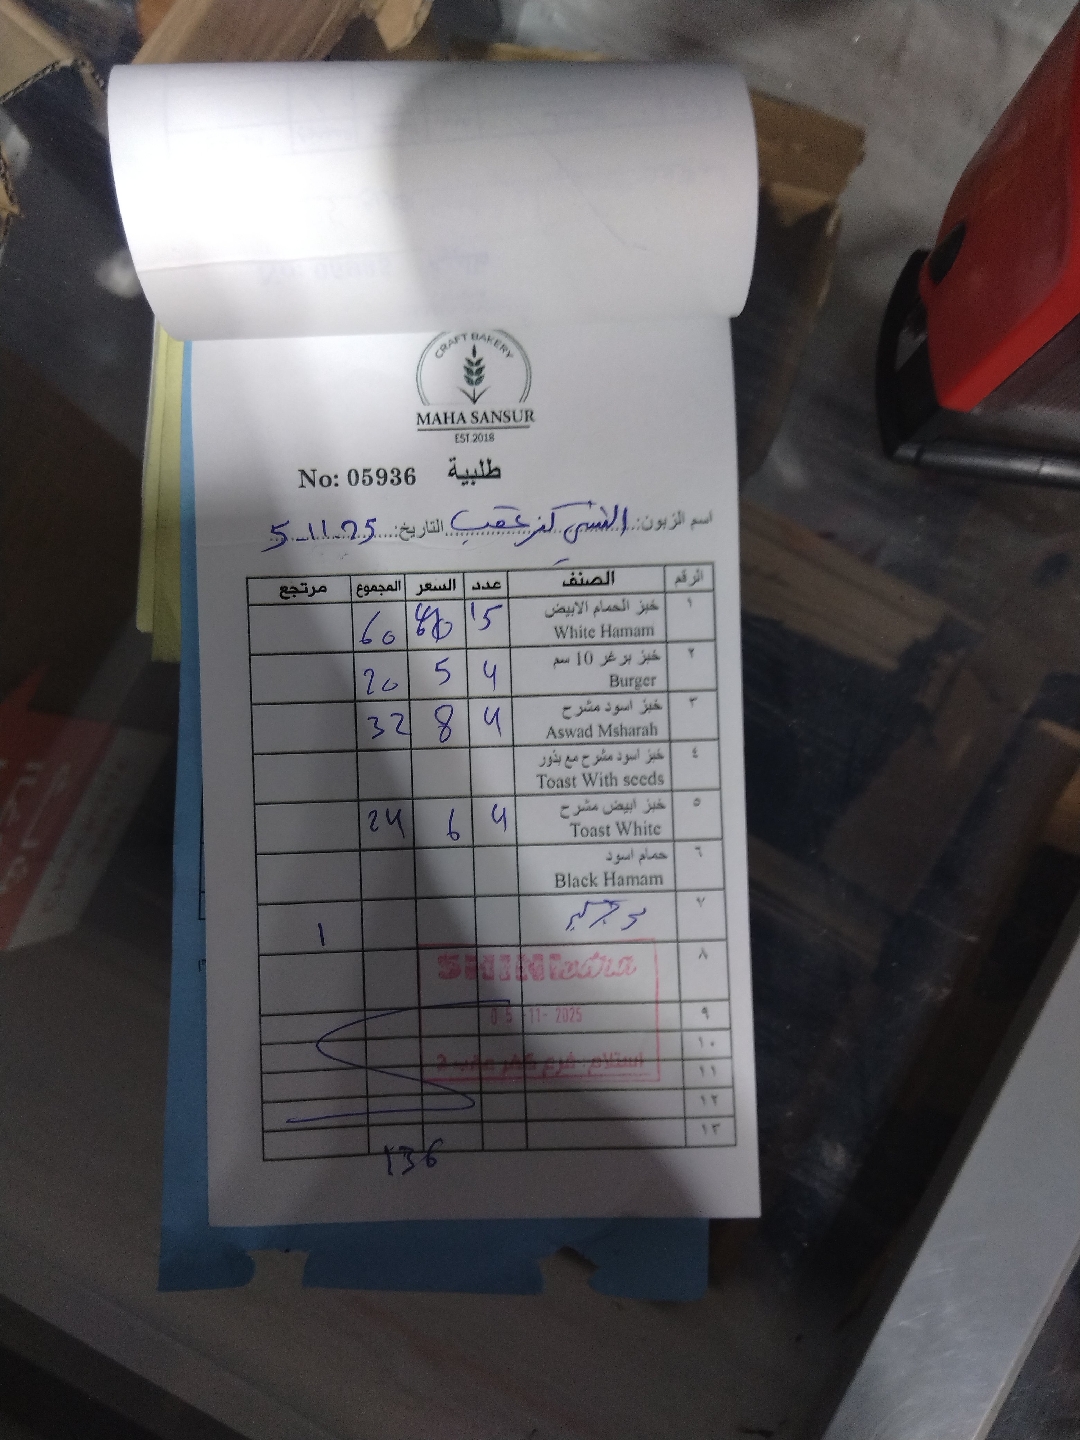 CRAFT BAKERY
MAHA SANSUR
EST.2018
No: 05936 طلبية
اسم الزبون: الشني كفر عقب التاريخ: 5-11-25
الرقم الصنف عدد السعر المجموع مرتجع
١ خبز الحمام الابيض 15 60
White Hamam
٢ خبز برغر 10 سم 4 5 20
Burger
٣ خبز اسود مشرح 4 8 32
Aswad Msharah
٤ خبز اسود مشرح مع بذور
Toast With seeds
٥ خبز ابيض مشرح 4 6 24
Toast White
٦ حمام اسود
Black Hamam
٧ 1
٨
SHINI extra
٩
05-11-2025
١٠
١١
استلام: فرع كفر عقب 2
١٢
١٣
136